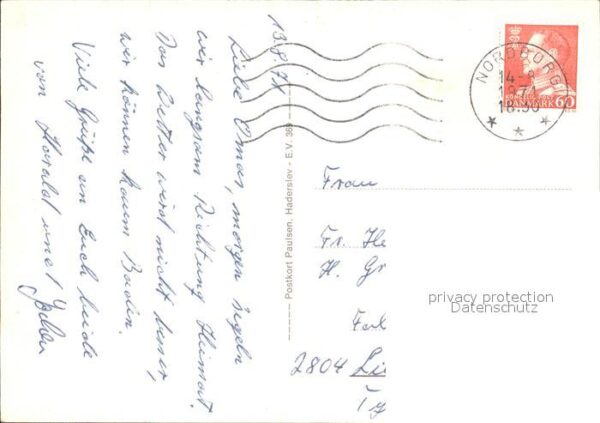 13.8.71
Liebe Omas, morgen segeln
wir langsam Richtung Heimat.
Das Wetter wird nicht besser,
wir können kaum Baden.
Viele Grüße an Euch beide
von Harald und
Postkort Paulsen, Haderslev - E.V. 369
NORDBORG
14-8
1971
18.30
DANMARK 60
Frau
Fr. He
H. Gr
2804 Lil
privacy protection
Datenschutz